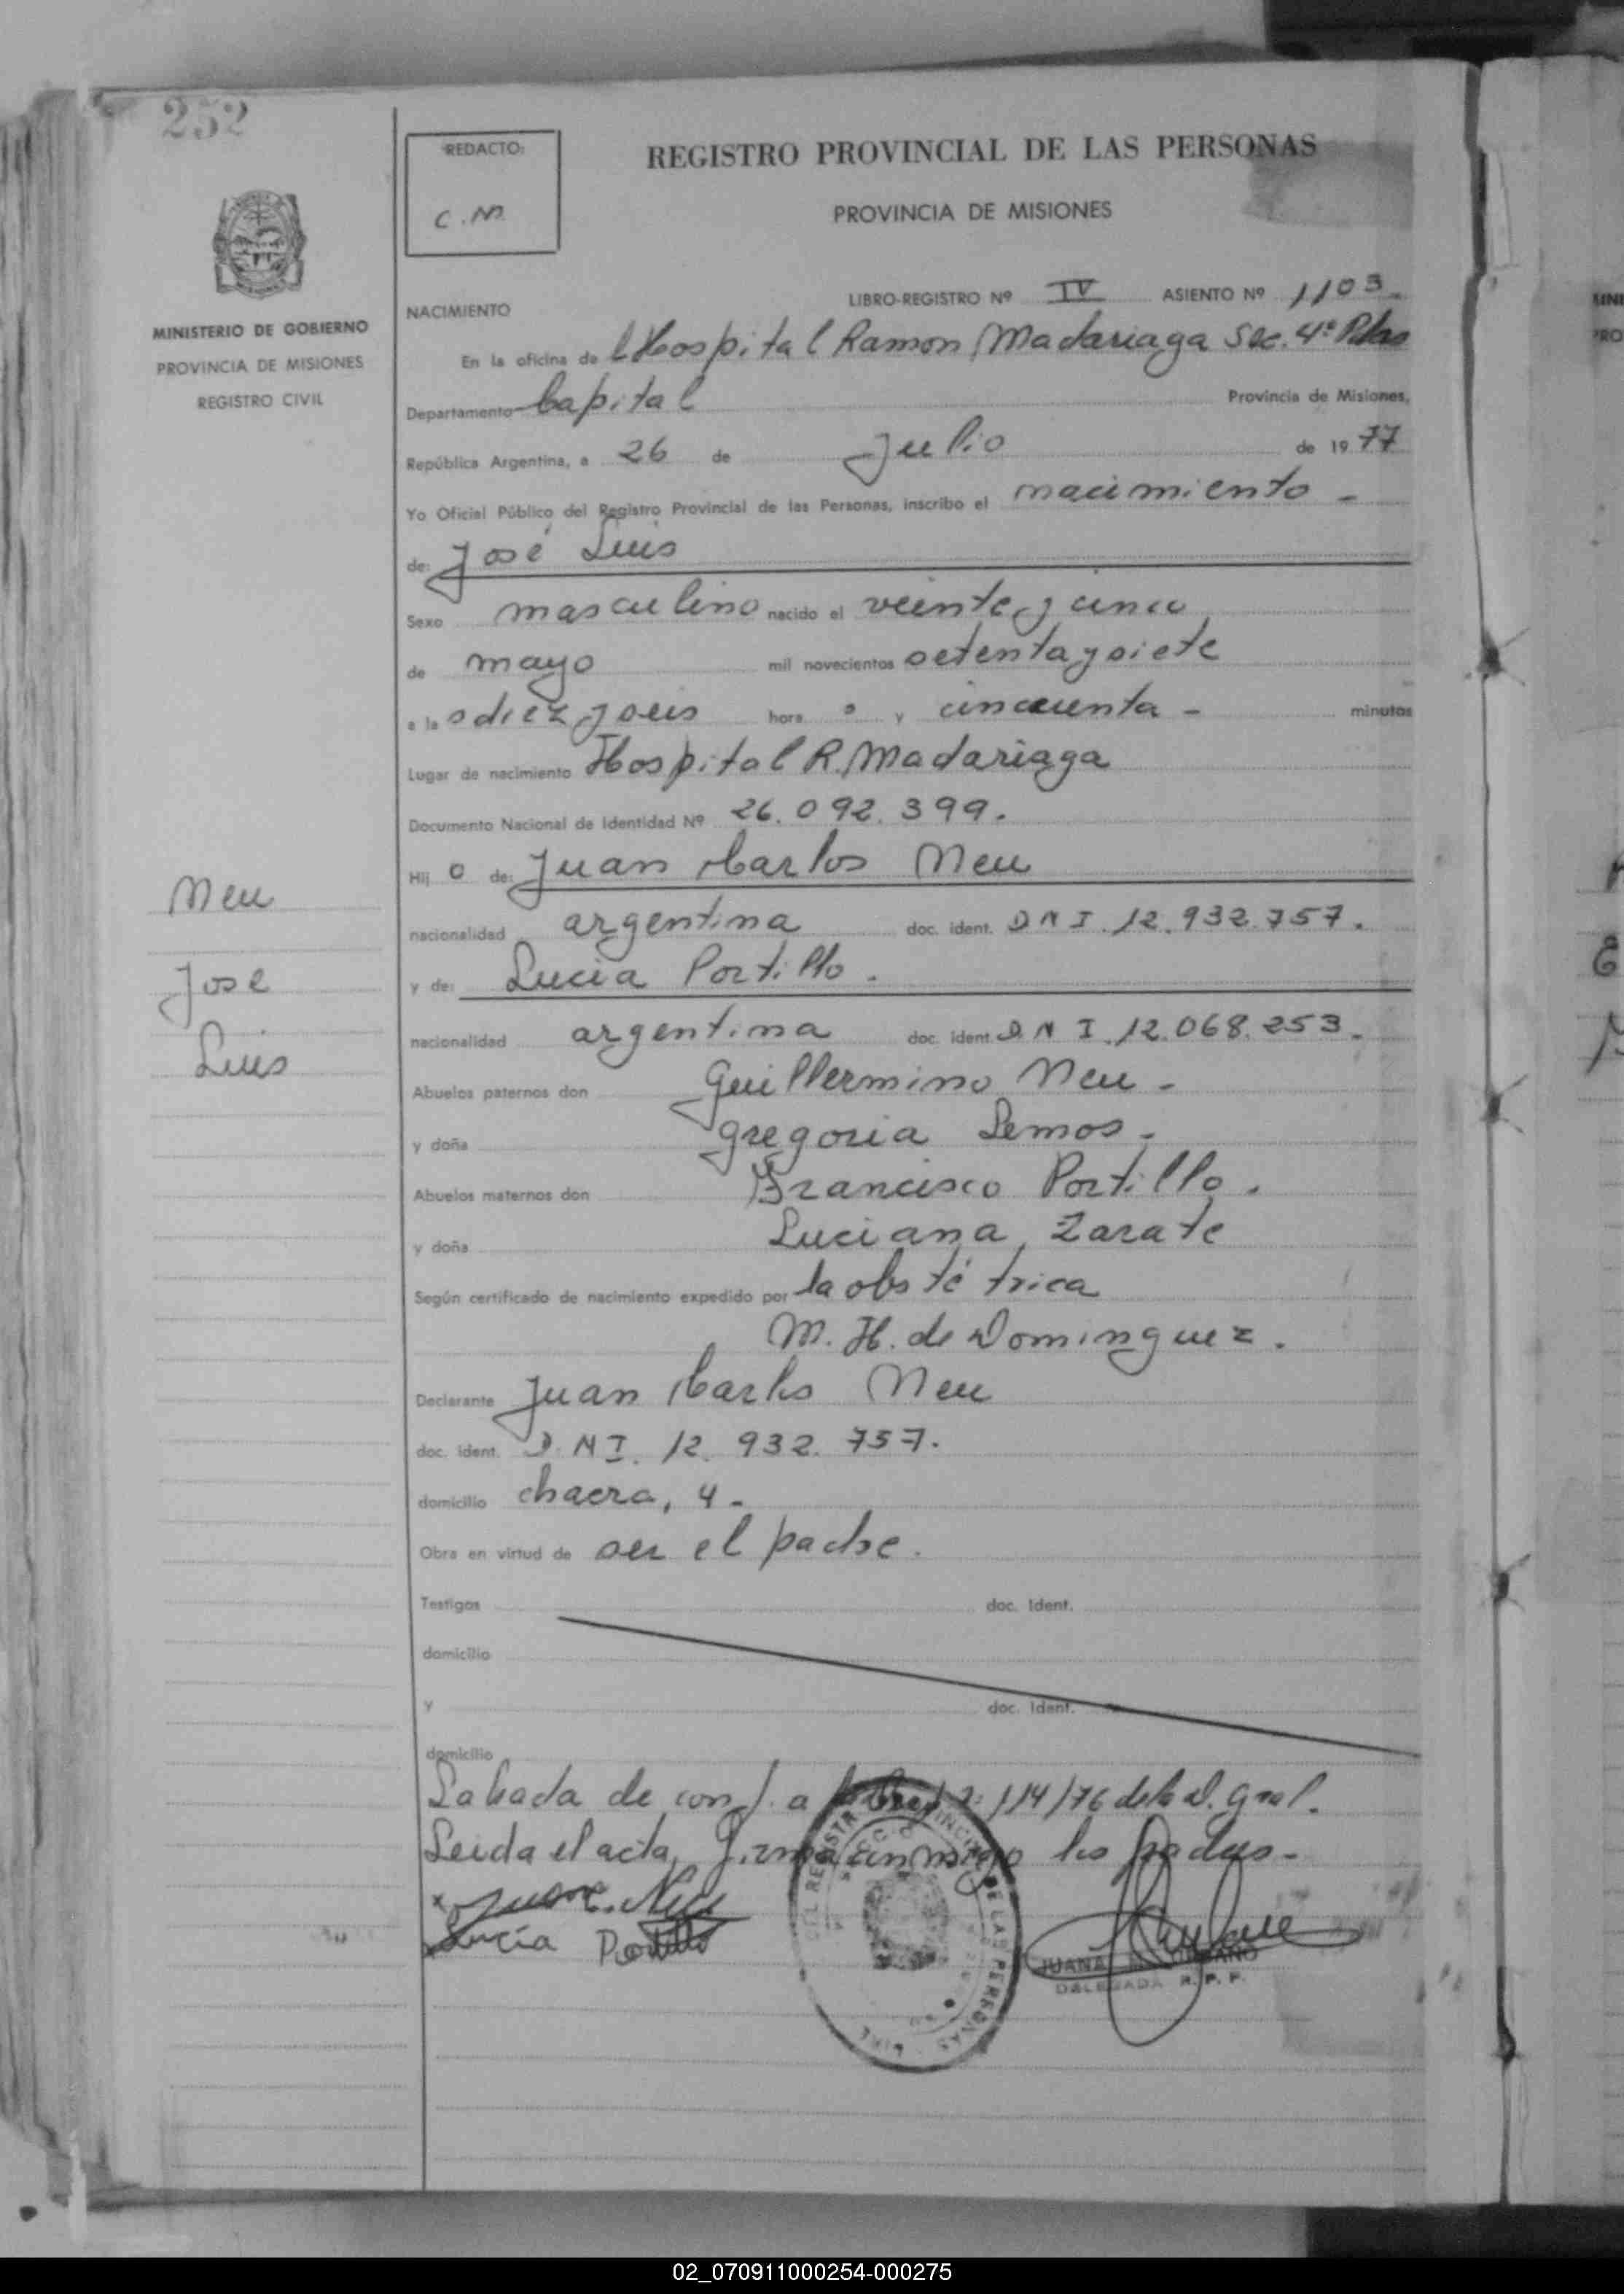 252
REDACTO:
C. M.
REGISTRO PROVINCIAL DE LAS PERSONAS
PROVINCIA DE MISIONES
MINISTERIO DE GOBIERNO
PROVINCIA DE MISIONES
REGISTRO CIVIL
LIBRO-REGISTRO Nº IV ASIENTO Nº 1103.
NACIMIENTO
En la oficina de Hospital Ramon Madariaga Sec. 4ª Pdas
Departamento Capital Provincia de Misiones,
República Argentina, a 26 de Julio de 1977
Yo Oficial Público del Registro Provincial de las Personas, inscribo el nacimiento -
de: José Luis
Sexo masculino nacido el veinte y cinco
de mayo mil novecientos setenta y siete
a las diez y seis hora s y cincuenta - minutos
Lugar de nacimiento Hospital R. Madariaga
Documento Nacional de Identidad Nº 26.092.399.
Hij o de: Juan Carlos Neu
nacionalidad argentina doc. ident. DNI. 12.932.757.
y de: Lucia Portillo.
nacionalidad argentina doc. ident. DNI. 12.068.253.
Abuelos paternos don Guillermino Neu -
y doña Gregoria Lemos.
Abuelos maternos don Francisco Portillo.
y doña Luciana Zarate
Según certificado de nacimiento expedido por la obstétrica
M. H. de Dominguez.
Declarante Juan Carlos Neu
doc. ident. D.NI. 12.932.757.
domicilio chacra, 4 -
Obra en virtud de ser el padre.
Testigos doc. Ident.
domicilio
y doc. Ident.
domicilio
Labada de conf. a 114/76 de la D. Gral.
Leida el acta, firman conmigo los padres -
Juan C. Neu
Lucía Portillo
JUANA
DELEGADA R. P. P.
Neu
Jose
Luis
02_070911000254-000275